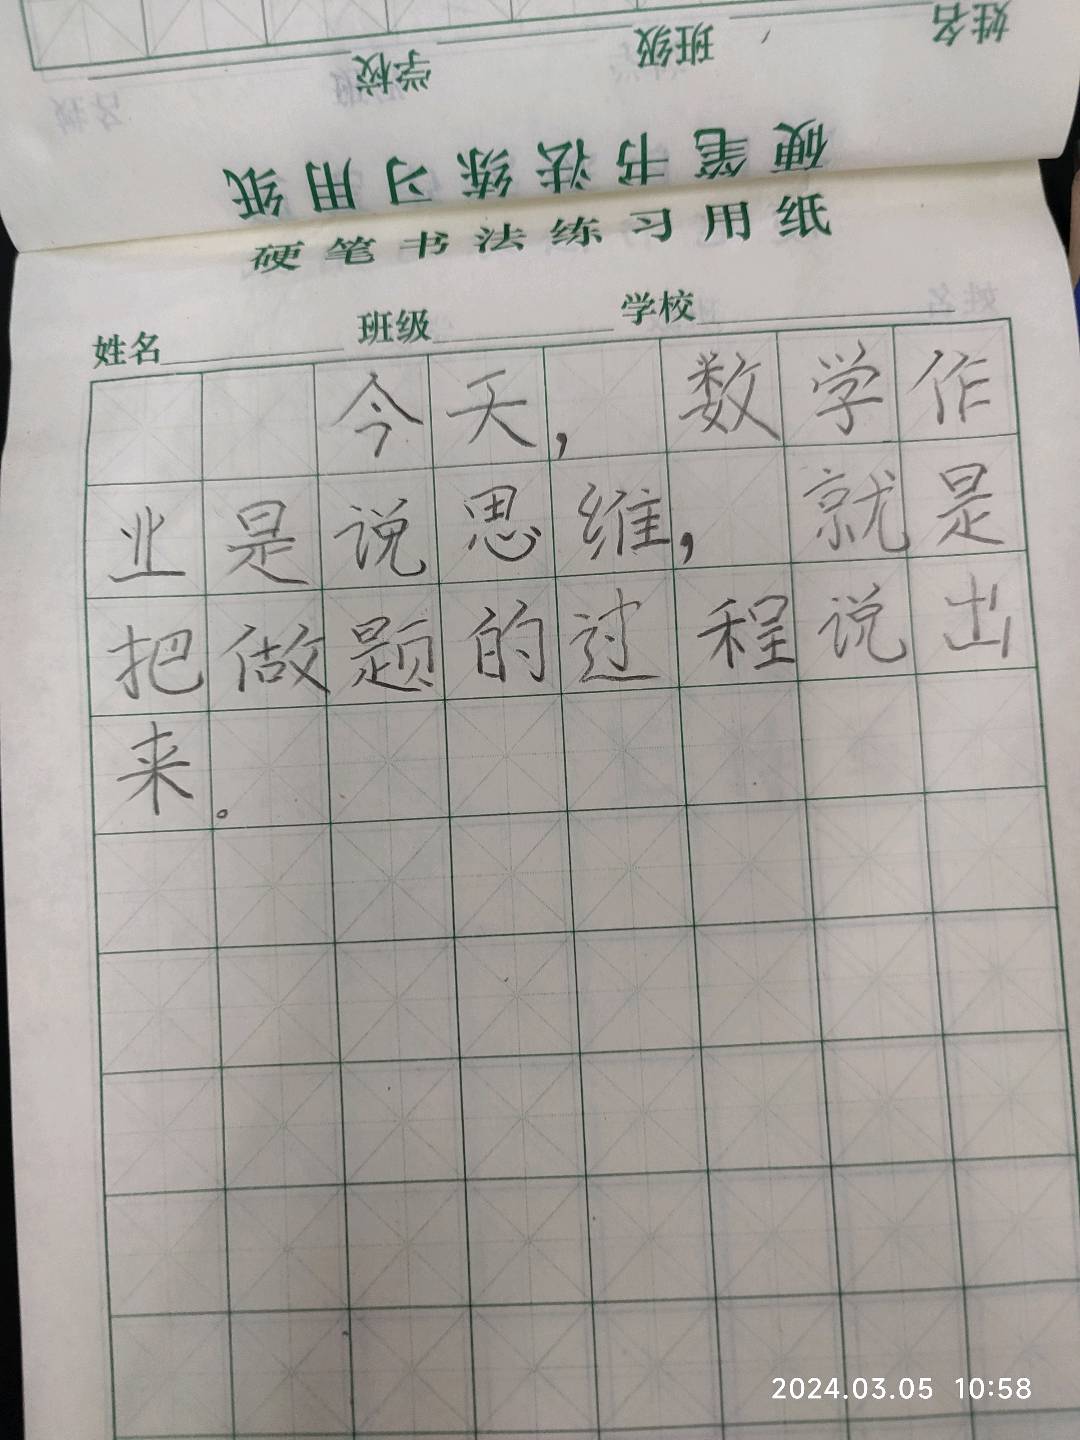 姓名 班级 学校
硬笔书法练习用纸
硬笔书法练习用纸
姓名 班级 学校
今天，数学作
业是说思维，就是
把做题的过程说出
来。
2024.03.05 10:58